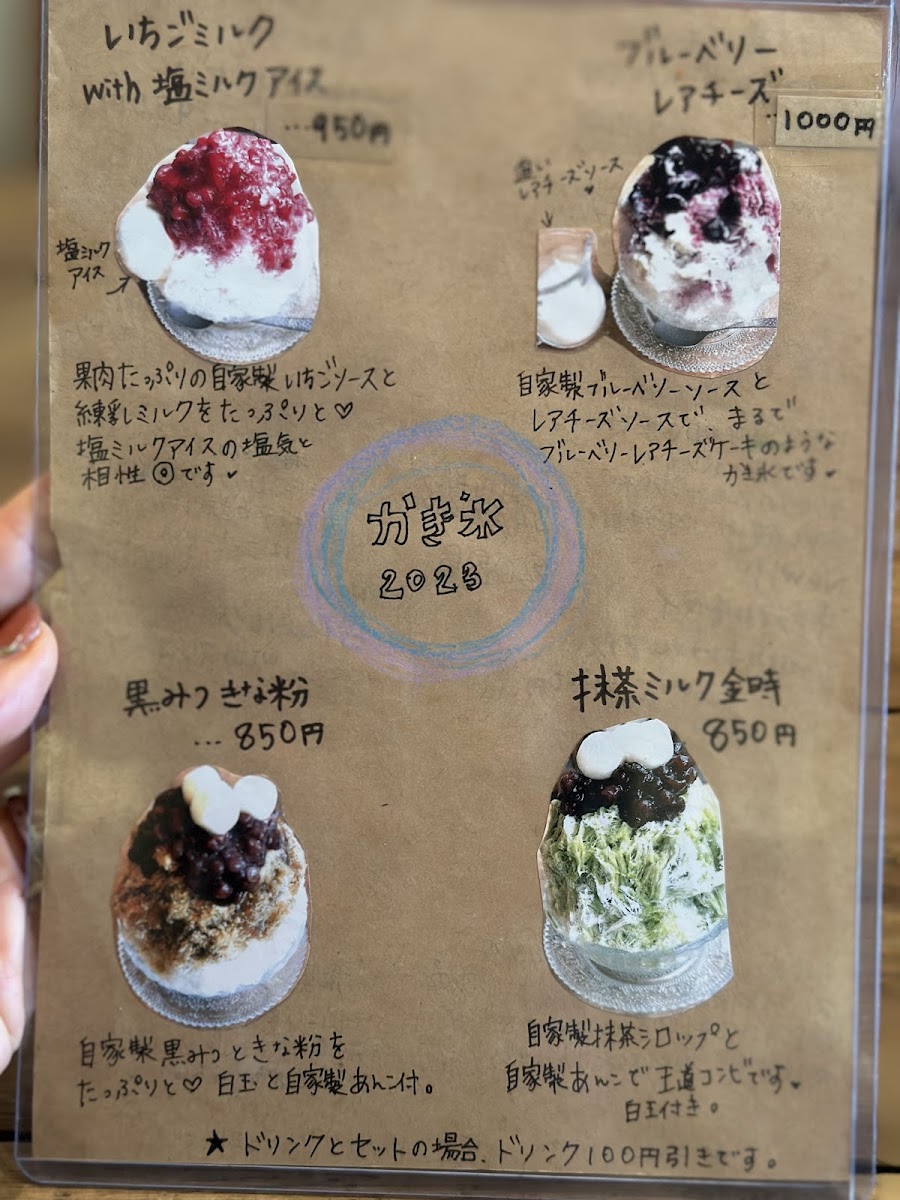 いちごミルク
with 塩ミルクアイス
…950円
塩ミルク
アイス
果肉たっぷりの自家製いちごソースと
練乳ミルクをたっぷりと♡
塩ミルクアイスの塩気と
相性◎です♥
ブルーベリー
レアチーズ
…1000円
レアチーズソース
♥
自家製ブルーベリーソースと
レアチーズソースで、まるで
ブルーベリーレアチーズケーキのような
かき氷です♥
かき氷
2023
黒みつきな粉
…850円
自家製黒みつときな粉を
たっぷりと♡ 白玉と自家製あんこ付。
抹茶ミルク金時
850円
自家製抹茶シロップと
自家製あんこで王道コンビです♥
白玉付き。
★ドリンクとセットの場合、ドリンク100円引きです。